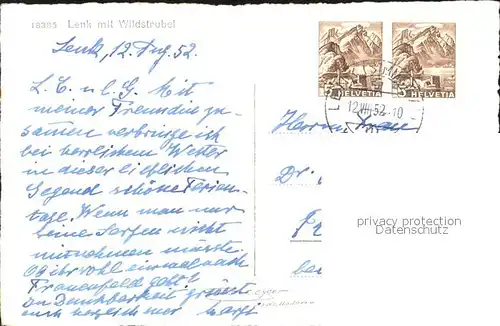 12383 Lenk mit Wildstrubel
Lenk, 12. Aug. 52.
HELVETIA HELVETIA
12.VIII.52.-10
L. C. u. l. G. Mit
meiner Freundin zu-
sammen verbringe ich
bei herrlichem Wetter
in dieser lieblichen
Gegend schöne Ferien-
tage. Wenn man nur
keine Sorgen nicht
mitnehmen müsste.
Ob ihr wohl einmal nach
Frauenfeld geht?
In Dankbarkeit grüsst
euch herzlich nur
Herrn
Dr.
privacy protection
Datenschutz